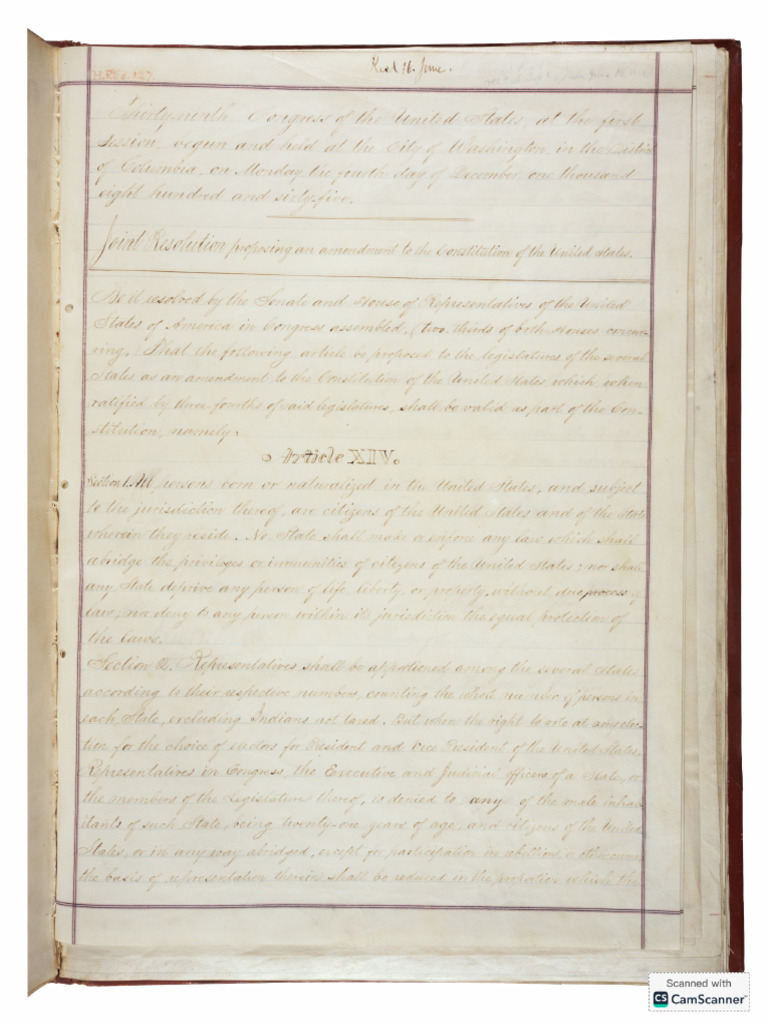 H. Res. 127.
Recd 16. June.
Thirty-ninth Congress of the United States, at the first
session, begun and held at the City of Washington, in the District
of Columbia, on Monday the fourth day of December, one thousand
eight hundred and sixty-five.
Joint Resolution proposing an amendment to the Constitution of the United States.
Be it resolved by the Senate and House of Representatives of the United
States of America in Congress assembled, (two thirds of both Houses concur-
ring,) That the following article be proposed to the legislatures of the several
States as an amendment to the Constitution of the United States, which, when
ratified by three-fourths of said legislatures, shall be valid as part of the Con-
stitution, namely:
Article XIV.
Section 1. All persons born or naturalized in the United States, and subject
to the jurisdiction thereof, are citizens of the United States and of the State
wherein they reside. No State shall make or enforce any law which shall
abridge the privileges or immunities of citizens of the United States; nor shall
any State deprive any person of life, liberty, or property, without due process of
law; nor deny to any person within its jurisdiction the equal protection of
the laws.
Section 2. Representatives shall be apportioned among the several States
according to their respective numbers, counting the whole number of persons in
each State, excluding Indians not taxed. But when the right to vote at any elec-
tion for the choice of electors for President and Vice President of the United States,
Representatives in Congress, the Executive and Judicial officers of a State, or
the members of the Legislature thereof, is denied to any of the male inhab-
itants of such State, being twenty-one years of age, and citizens of the United
States, or in any way abridged, except for participation in rebellion, or other crime,
the basis of representation therein shall be reduced in the proportion which the
Scanned with
CS CamScanner